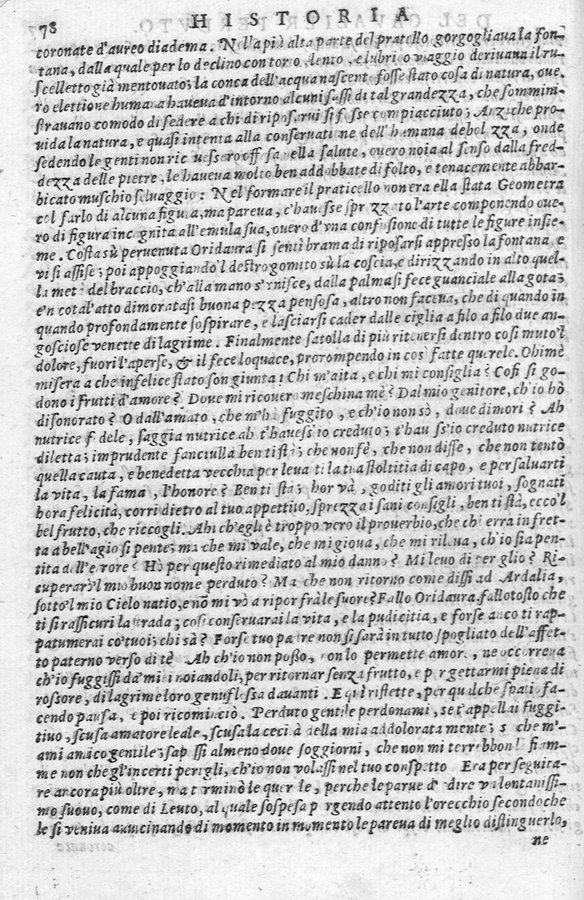 78 HISTORIA
coronate d'aureo diadema. Nella più alta parte del pratello gorgogliava la fon-
tana, dalla quale per lo declino con torto, lento, e lubrico viaggio derivava il ru-
scelletto già mentovato; la conca dell'acqua nascente fosse stato cosa di natura, ove-
ro elettione humana haveva d'intorno alcuni sassi di tal grandezza, che sommini-
stravano comodo di sedere a chi di riposarsi si fosse compiacciuto; Anzi che pro-
vida la natura, e quasi intenta alla conservatione dell'humana debolezza, onde
sedendo le genti non ricevessero offesa nella salute, overo noia al senso dalla fred-
dezza delle pietre, le haveva molto ben addobbate di folto, e tenacemente abbar-
bicato muschio selvaggio: Nel formare il praticello non era ella stata Geometra
col farlo di alcuna figura, ma pareva, c'havesse sprezzato l'arte componendo ove-
ro di figura incognita all'emula sua, overo d'vna confusione di tutte le figure insie-
me. Costa sù pervenuta Oridaura si sentì brama di riposarsi appresso la fontana e
vi si assise; poi appoggiando'l destro gomito sù la coscia, e dirizzando in alto quel-
la metà del braccio, ch'alla mano s'vnisce, dalla palma si fece guanciale alla gota;
e'n cotal'atto dimoratasi buona pezza pensosa, altro non faceva, che di quando in
quando profondamente sospirare, e lasciarsi cader dalle ciglia a filo a filo due an-
gosciose venette di lagrime. Finalmente satolla di più ritenersi dentro così muto'l
dolore, fuori l'aperse, & il fece loquace, prorompendo in cosi fatte querele. Ohimè
misera a che infelice stato son giunta? Chi m'aita, e chi mi consiglia? Così si go-
dono i frutti d'amore? Dove mi ricovero meschina mè? Dal mio genitore, ch'io hò
disonorato? O dall'amato, che m'hà fuggito, e ch'io non sò, dove dimori? Ah
nutrice fedele, saggia nutrice ah t'havess'io creduto; t'havess'io creduto nutrice
diletta; imprudente fanciulla ben ti stà; che non fè, che non disse, che non tentò
quella cauta, e benedetta vecchia per levarti la tua stoltitia di capo, e per salvarti
la vita, la fama, l'honore? Ben ti stà; hor và, goditi gli amori tuoi, sognati
hora felicità, corri dietro al tuo appettito, sprezza i sani consigli, ben ti stà, ecco'l
bel frutto, che riccogli. Ahi ch'egli è troppo vero il proverbio, che ch'erra in fret-
ta a bell'agio si pente; ma che mi vale, che mi giova, che mi rileva, ch'io sia pen-
tita dell'errore? Hò per questo rimediato al mio danno? Mi levo di periglio? Ri-
cuperarò'l mio buon nome perduto? Ma che non ritorno come dissi ad Ardalia,
sotto'l mio Cielo natio, e nō mi vò a ripor frà le suore? Fallo Oridaura, fallo tosto che
ti si rassicuri la strada; così conservarai la vita, e la pudicitia, e forse anco ti rap-
patumerai co'tuoi; chi sà? Forse tuo padre non si sarà in tutto spogliato dell'affet-
to paterno verso di tè. Ah ch'io non poßo, non lo permette amore, ne occorreva
ch'io fuggissi da'miei noiandoli, per ritornar senza frutto, e per gettarmi piena di
rossore, di lagrime loro genuflessa davanti. E qui ristette, per qualche spatio fa-
cendo pausa, e poi ricominciò. Perduto gentile perdonami, se t'appellai fuggi-
tivo, scusa amatore leale, scusa la cecità della mia addolorata mente; sò che m'
ami amico gentile; sapessi almeno dove soggiorni, che non mi terrebbon le fiam-
me non che gl'incerti perigli, ch'io non volassi nel tuo conspetto. Era per seguita-
re ancora più oltre, ma terminò le querele, perche le parve d'vdire vn lontanissi-
mo suono, come di Leuto, al quale sospesa porgendo attento l'orecchio secondo che
le si veniva avvicinando di momento in momento le pareva di meglio distinguerlo,
ne